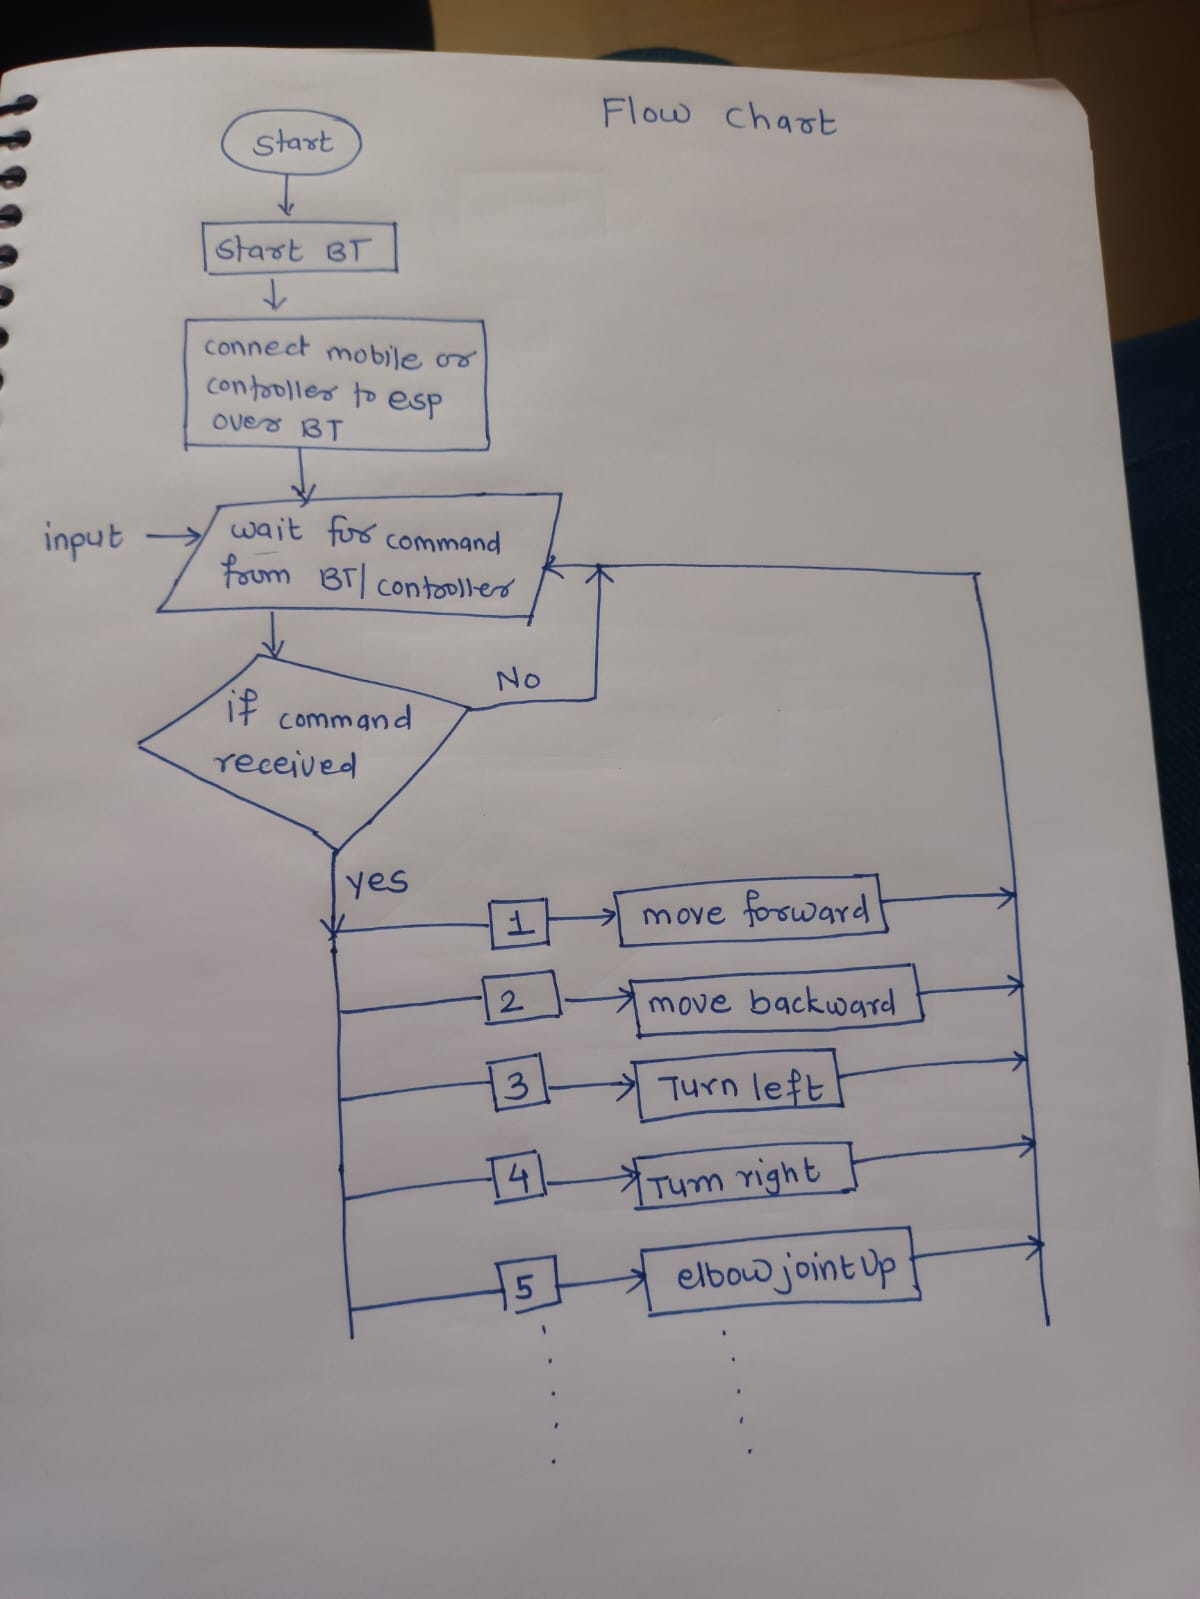 Flow chart
Start
Start BT
connect mobile or
controller to esp
over BT
input
wait for command
from BT/controller
No
if command
received
yes
1
move forward
2
move backward
3
Turn left
4
Turn right
5
elbow joint Up